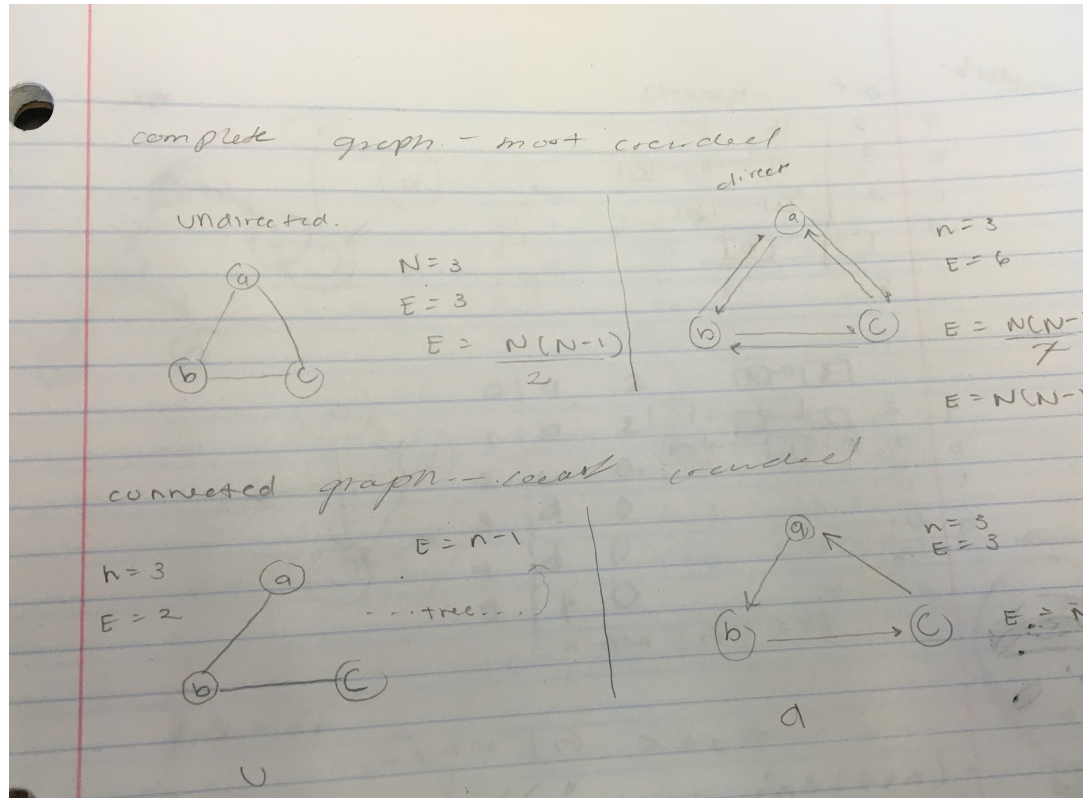 complete graph - most crowded
undirected.
a
b
c
N = 3
E = 3
E = N(N-1)
2
direct
a
b
c
n = 3
E = 6
E = N(N-
7
E = N(N-1
connected graph - least crowded
n = 3
E = 2
a
b
C
E = n-1
...tree....
U
a
b
C
n = 3
E = 3
E = N
d